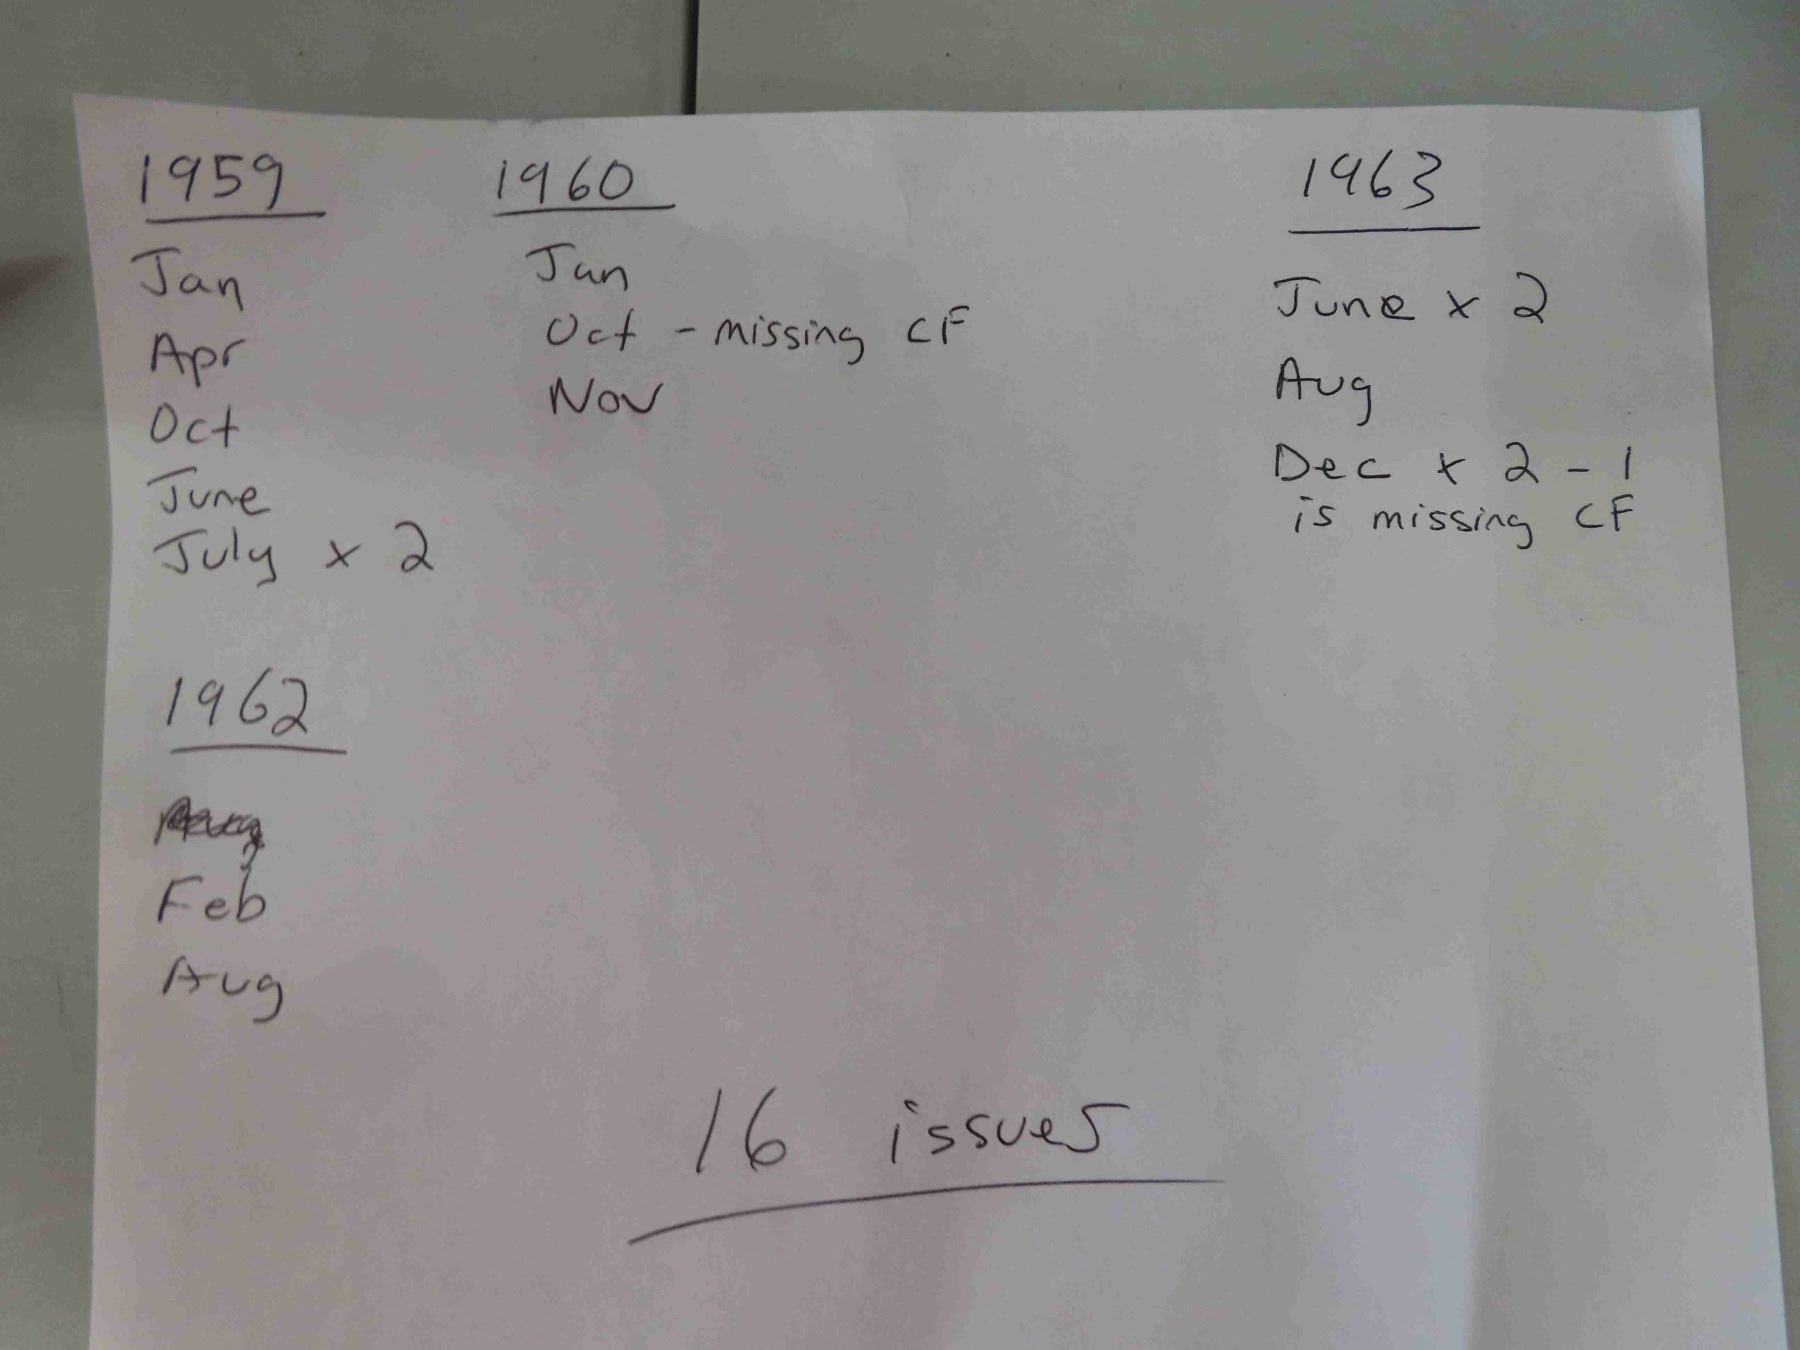 1959
Jan
Apr
Oct
June
July x 2
1960
Jan
Oct - missing CF
Nov
1963
June x 2
Aug
Dec x 2 - 1
is missing CF
1962
Feb
Aug
16 issues